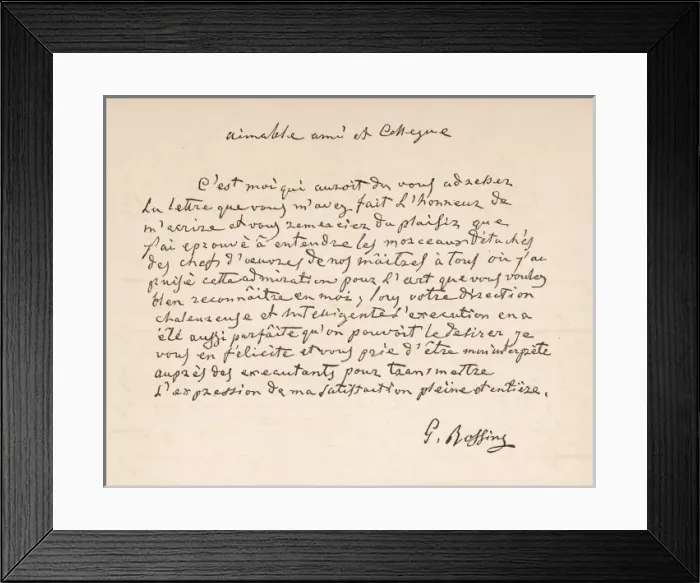 aimable ami et Collegue
C'est moi qui auroit du vous adresser
La lettre que vous m'avez fait L'honneur de
m'ecrire et vous remercier du plaisir que
j'ai eprouvé à entendre les morceaux détachés
des chefs d'œuvres de nos maîtres à tous où j'ai
puisé cette admiration pour L'art que vous voulez
bien reconnaître en moi, sous votre direction
chaleureuse et intelligente L'execution en a
été aussi parfaite qu'on pouvoit le desirer je
vous en félicite et vous prie d'être mon interprète
auprès des executants pour transmettre
L'expression de ma satisfaction pleine et entière.
G. Rossini